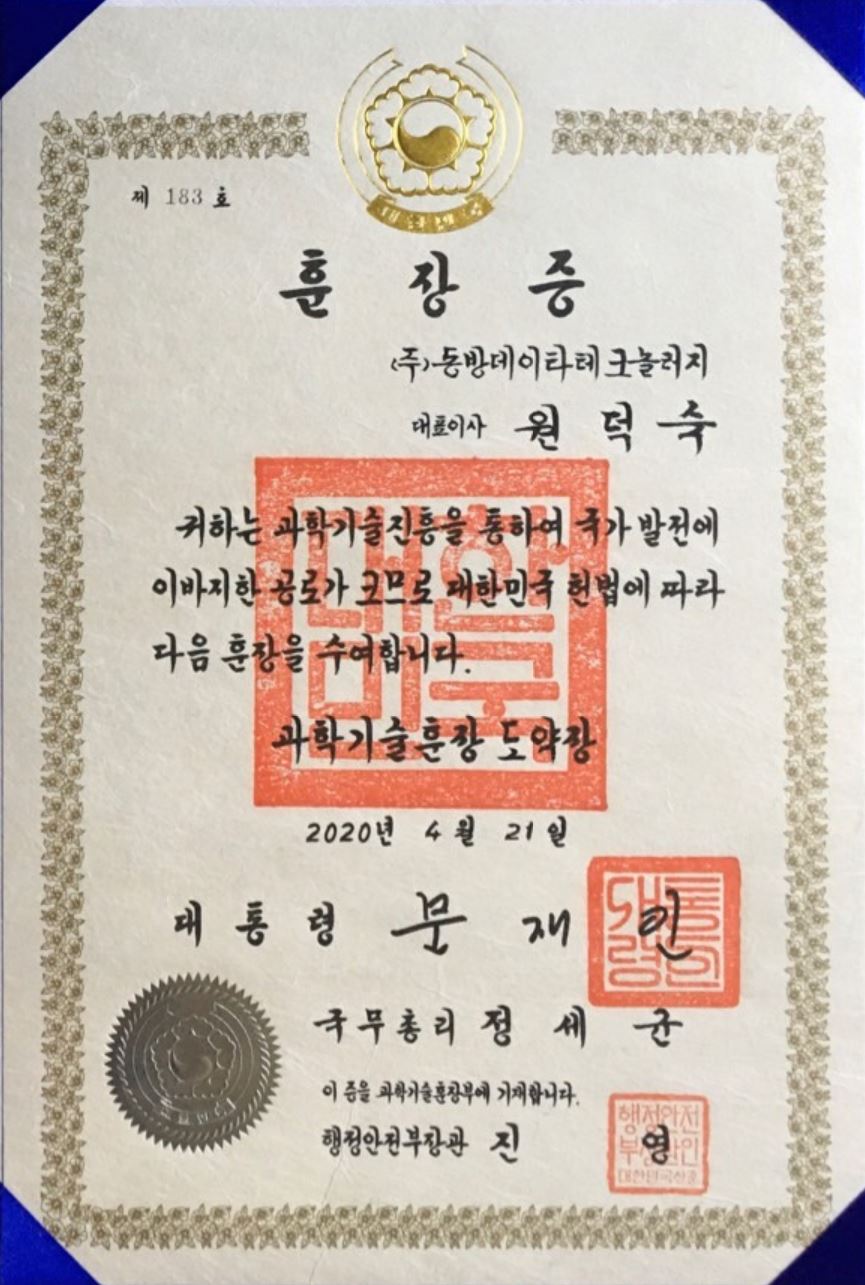 대한민국
제 183 호
훈 장 증
(주)동방데이타테크놀러지
대표이사 원 덕 숙
귀하는 과학기술진흥을 통하여 국가 발전에
이바지한 공로가 크므로 대한민국 헌법에 따라
다음 훈장을 수여합니다.
대한민국
과학기술훈장 도약장
2020년 4 월 21 일
대 통 령 문 재 인
대통령인
국 무 총 리 정 세 균
이 증을 과학기술훈장부에 기재합니다.
행정안전부장관 진 영
행정안전
부장관인